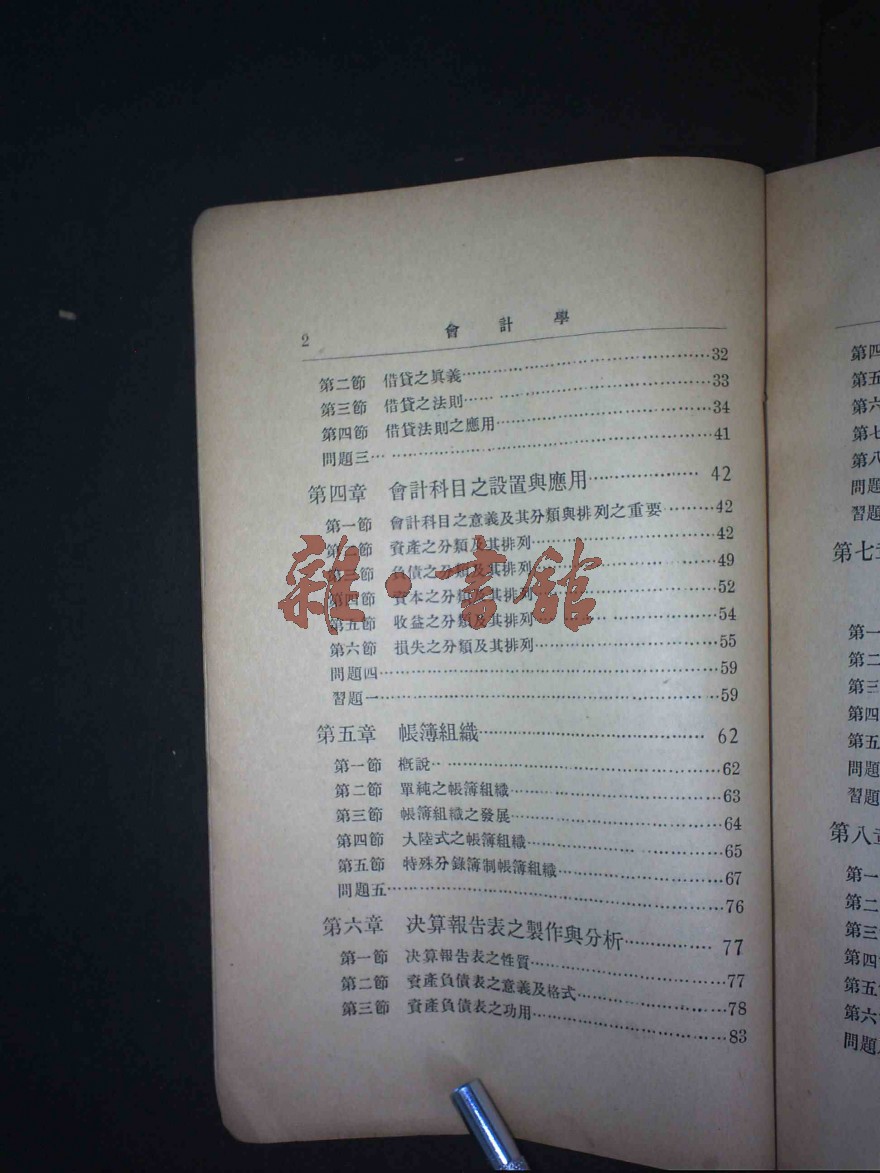 2 會計學
第二節 借貸之眞義……32
第三節 借貸之法則……33
第四節 借貸法則之應用……34
問題三……41
第四章 會計科目之設置與應用……42
第一節 會計科目之意義及其分類與排列之重要……42
第二節 資產之分類及其排列……42
第三節 負債之分類及其排列……49
第四節 資本之分類及其排列……52
第五節 收益之分類及其排列……54
第六節 損失之分類及其排列……55
問題四……59
習題一……59
第五章 帳簿組織……62
第一節 概說……62
第二節 單純之帳簿組織……63
第三節 帳簿組織之發展……64
第四節 大陸式之帳簿組織……65
第五節 特殊分錄簿制帳簿組織……67
問題五……76
第六章 决算報告表之製作與分析……77
第一節 决算報告表之性質……77
第二節 資產負債表之意義及格式……78
第三節 資產負債表之功用……83
雜·書館
第四
第五
第六
第七
第八
問題
習題
第七章
第一
第二
第三
第四
第五
問題
習題
第八章
第一
第二
第三
第四
第五
第六
問題